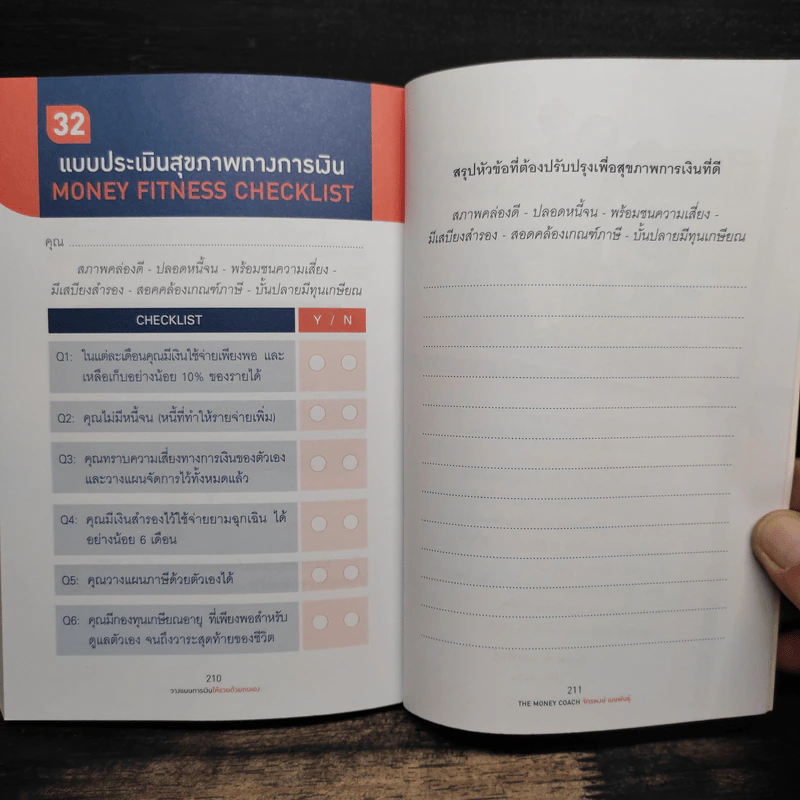 32
แบบประเมินสุขภาพทางการเงิน
MONEY FITNESS CHECKLIST
คุณ
สภาพคล่องดี - ปลอดหนี้จน - พร้อมชนความเสี่ยง -
มีเสบียงสำรอง - สอดคล้องเกณฑ์ภาษี - บั้นปลายมีทุนเกษียณ
CHECKLIST Y / N
Q1: ในแต่ละเดือนคุณมีเงินใช้จ่ายเพียงพอ และ
เหลือเก็บอย่างน้อย 10% ของรายได้
Q2: คุณไม่มีหนี้จน (หนี้ที่ทำให้รายจ่ายเพิ่ม)
Q3: คุณทราบความเสี่ยงทางการเงินของตัวเอง
และวางแผนจัดการไว้ทั้งหมดแล้ว
Q4: คุณมีเงินสำรองไว้ใช้จ่ายยามฉุกเฉิน ได้
อย่างน้อย 6 เดือน
Q5: คุณวางแผนภาษีด้วยตัวเองได้
Q6: คุณมีกองทุนเกษียณอายุ ที่เพียงพอสำหรับ
ดูแลตัวเอง จนถึงวาระสุดท้ายของชีวิต
210
วางแผนการเงินให้รวยด้วยตนเอง
สรุปหัวข้อที่ต้องปรับปรุงเพื่อสุขภาพการเงินที่ดี
สภาพคล่องดี - ปลอดหนี้จน - พร้อมชนความเสี่ยง -
มีเสบียงสำรอง - สอดคล้องเกณฑ์ภาษี - บั้นปลายมีทุนเกษียณ
211
THE MONEY COACH จักรพงษ์ เมษพันธุ์